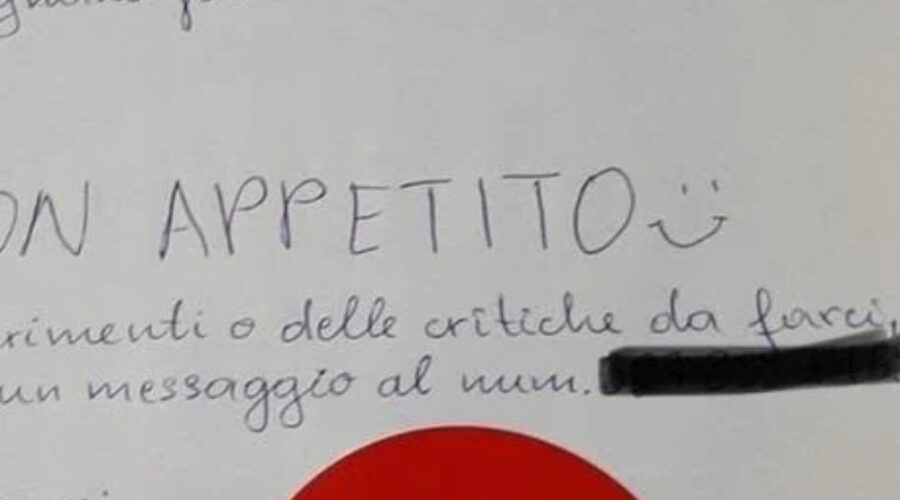 ON APPETITO
rimenti o delle critiche da farci,
un messaggio al num.